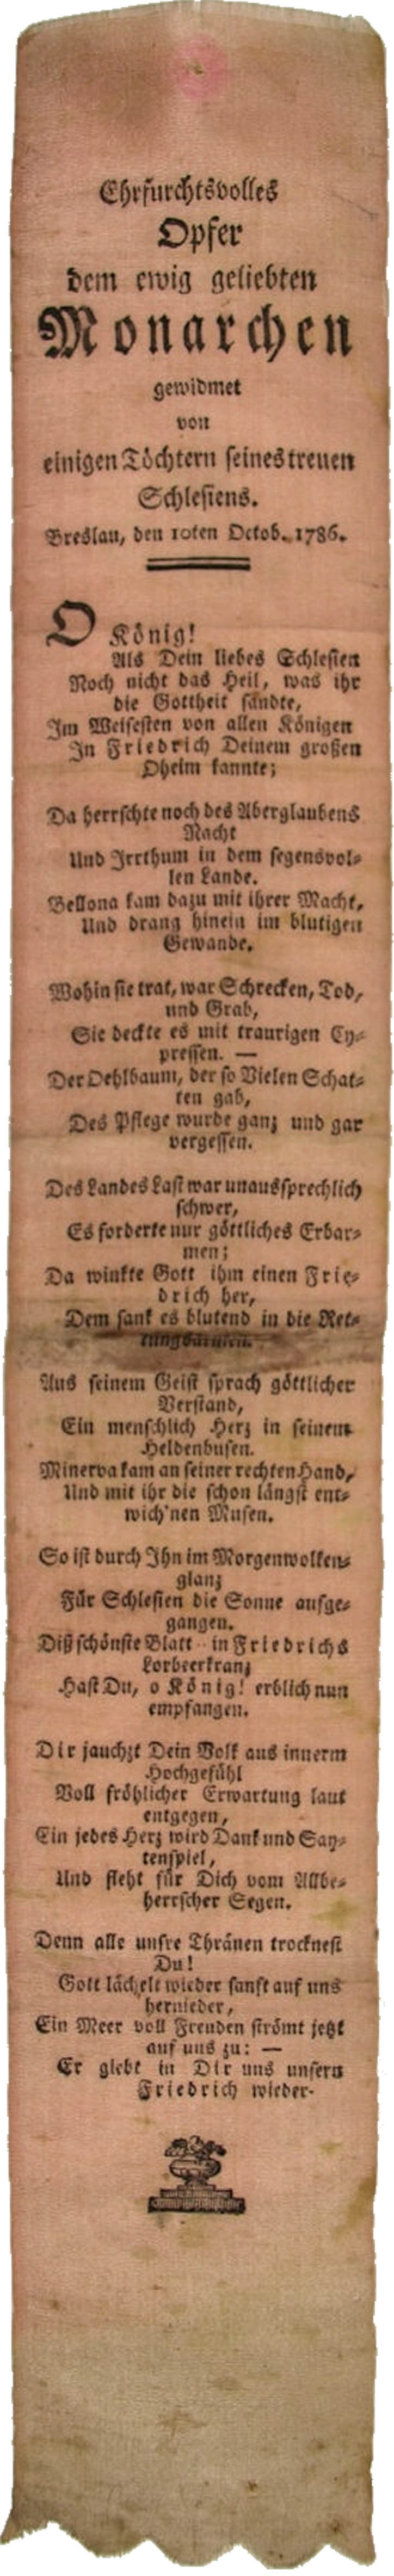 Ehrfurchtsvolles
Opfer
dem ewig geliebten
Monarchen
gewidmet
von
einigen Töchtern seines treuen
Schlesiens.
Breslau, den 10ten Octob. 1786.
O König!
Als Dein liebes Schlesien
Noch nicht das Heil, was ihr
die Gottheit sandte,
Im Weisesten von allen Königen
In Friedrich Deinem großen
Oheim kannte;
Da herrschte noch des Aberglaubens
Nacht
Und Irrthum in dem segensvol-
len Lande.
Bellona kam dazu mit ihrer Macht,
Und drang hinein im blutigen
Gewande.
Wohin sie trat, war Schrecken, Tod,
und Grab,
Sie deckte es mit traurigen Cy-
pressen. —
Der Oehlbaum, der so Vielen Schat-
ten gab,
Des Pflege wurde ganz und gar
vergessen.
Des Landes Last war unaussprechlich
schwer,
Es forderte nur göttliches Erbar-
men;
Da winkte Gott ihm einen Frie-
drich her,
Dem sank es blutend in die Ret-
tungsarmen.
Aus seinem Geist sprach göttlicher
Verstand,
Ein menschlich Herz in seinem
Heldenbusen.
Minerva kam an seiner rechten Hand,
Und mit ihr die schon längst ent-
wich'nen Musen.
So ist durch Ihn im Morgenwolken-
glanz
Für Schlesien die Sonne aufge-
gangen.
Diß schönste Blatt in Friedrichs
Lorbeerkranz
Hast Du, o König! erblich nun
empfangen.
Dir jauchzt Dein Volk aus innerm
Hochgefühl
Voll fröhlicher Erwartung laut
entgegen,
Ein jedes Herz wird Dank und Say-
tenspiel,
Und fleht für Dich vom Allbe-
herrscher Segen.
Denn alle unsre Thränen trocknest
Du!
Gott lächelt wieder sanft auf uns
hernieder,
Ein Meer voll Freuden strömt jetzt
auf uns zu: —
Er giebt in Dir uns unsern
Friedrich wieder.